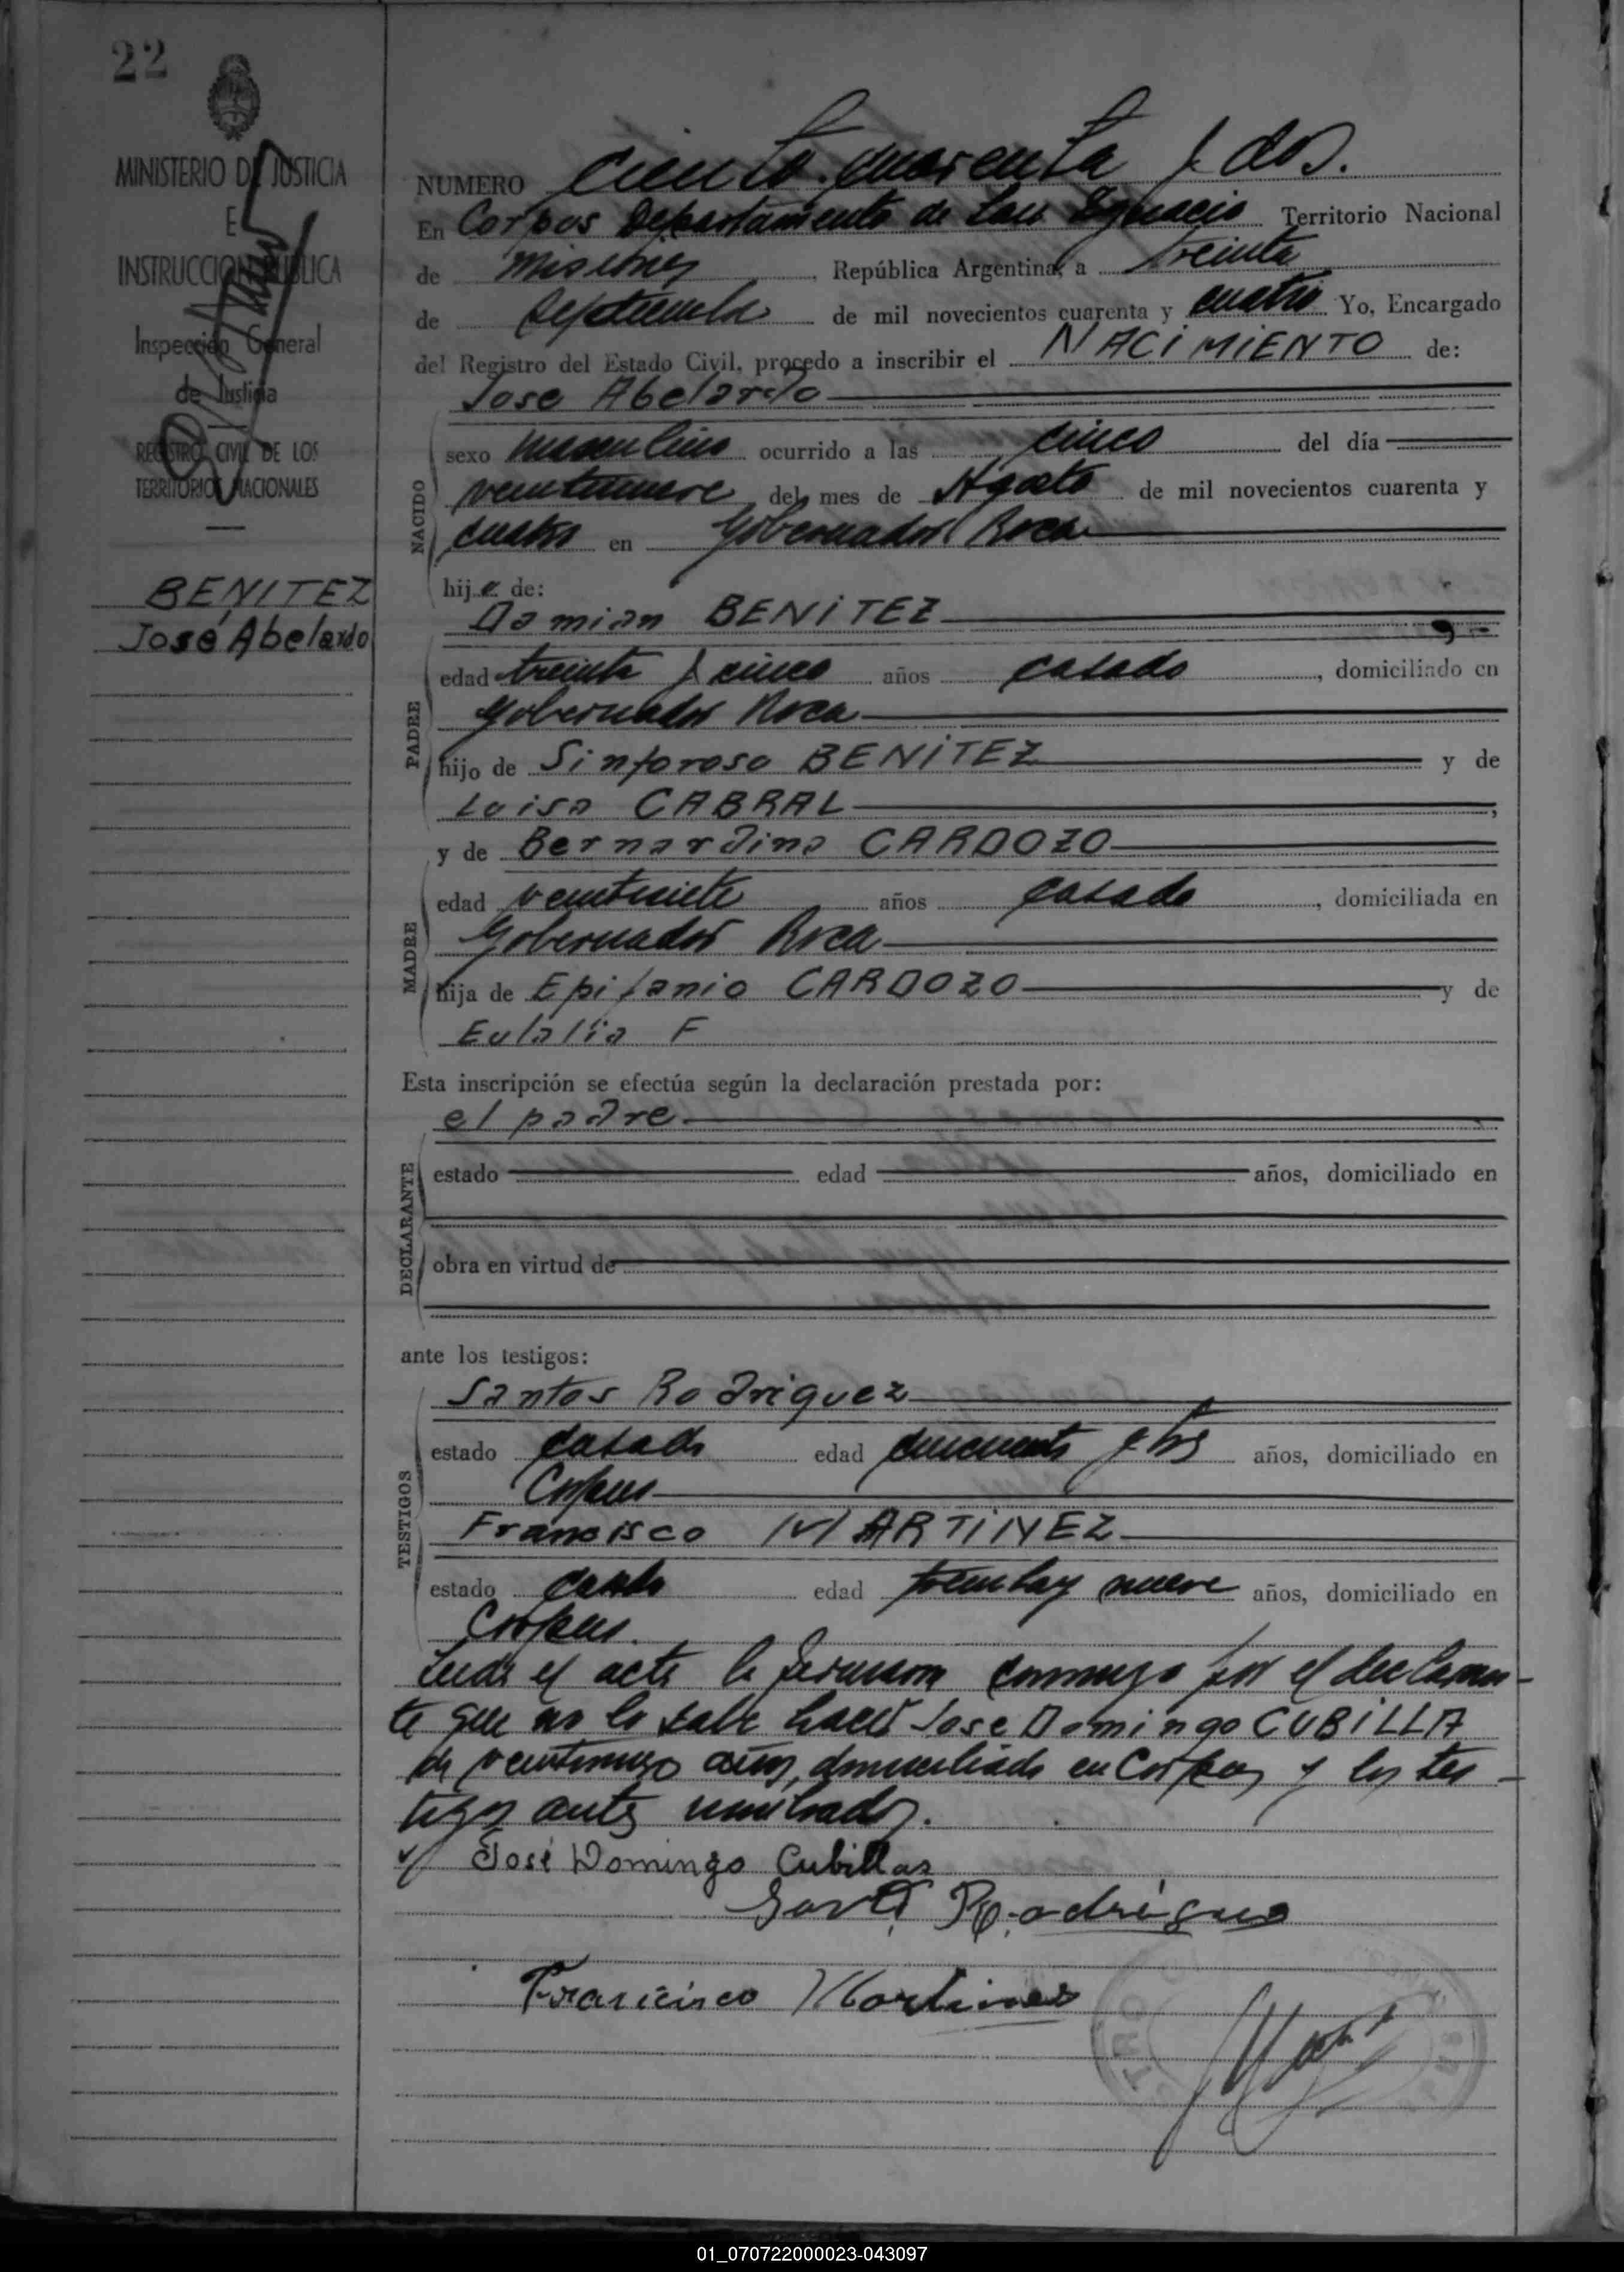 22
MINISTERIO DE JUSTICIA
E
INSTRUCCION PUBLICA
Inspección General
de Justicia
REGISTRO CIVIL DE LOS
TERRITORIOS NACIONALES
BENITEZ
José Abelardo
NUMERO Ciento cuarenta y dos.
En Corpus Departamento de San Ignacio Territorio Nacional
de Misiones, República Argentina, a treinta
de Septiembre de mil novecientos cuarenta y cuatro Yo, Encargado
del Registro del Estado Civil, procedo a inscribir el NACIMIENTO de:
Jose Abelardo
NACIDO
sexo masculino ocurrido a las cinco del día
veintinueve del mes de Agosto de mil novecientos cuarenta y
cuatro en Gobernador Roca
hijo de:
Damian BENITEZ
PADRE
edad treinta y cinco años casado, domiciliado en
Gobernador Roca
hijo de Sinforoso BENITEZ y de
Luisa CABRAL,
y de Bernardina CARDOZO
MADRE
edad veintisiete años casada, domiciliada en
Gobernador Roca
hija de Epifanio CARDOZO y de
Eulalia F
Esta inscripción se efectúa según la declaración prestada por:
el padre
DECLARANTE
estado edad años, domiciliado en
obra en virtud de
ante los testigos:
TESTIGOS
Santos Rodriguez
estado casado edad cincuenta y tres años, domiciliado en
Corpus
Francisco MARTINEZ
estado casado edad treinta y nueve años, domiciliado en
Corpus.
Leida el acta la firmaron conmigo por el declaran-
te que no lo sabe hacer Jose Domingo CUBILLA
de años, domiciliado en Corpus y los tes-
tigos antes nombrados.
José Domingo Cubillas
Santo Rodrigues
Francisco Martines
01_070722000023-043097